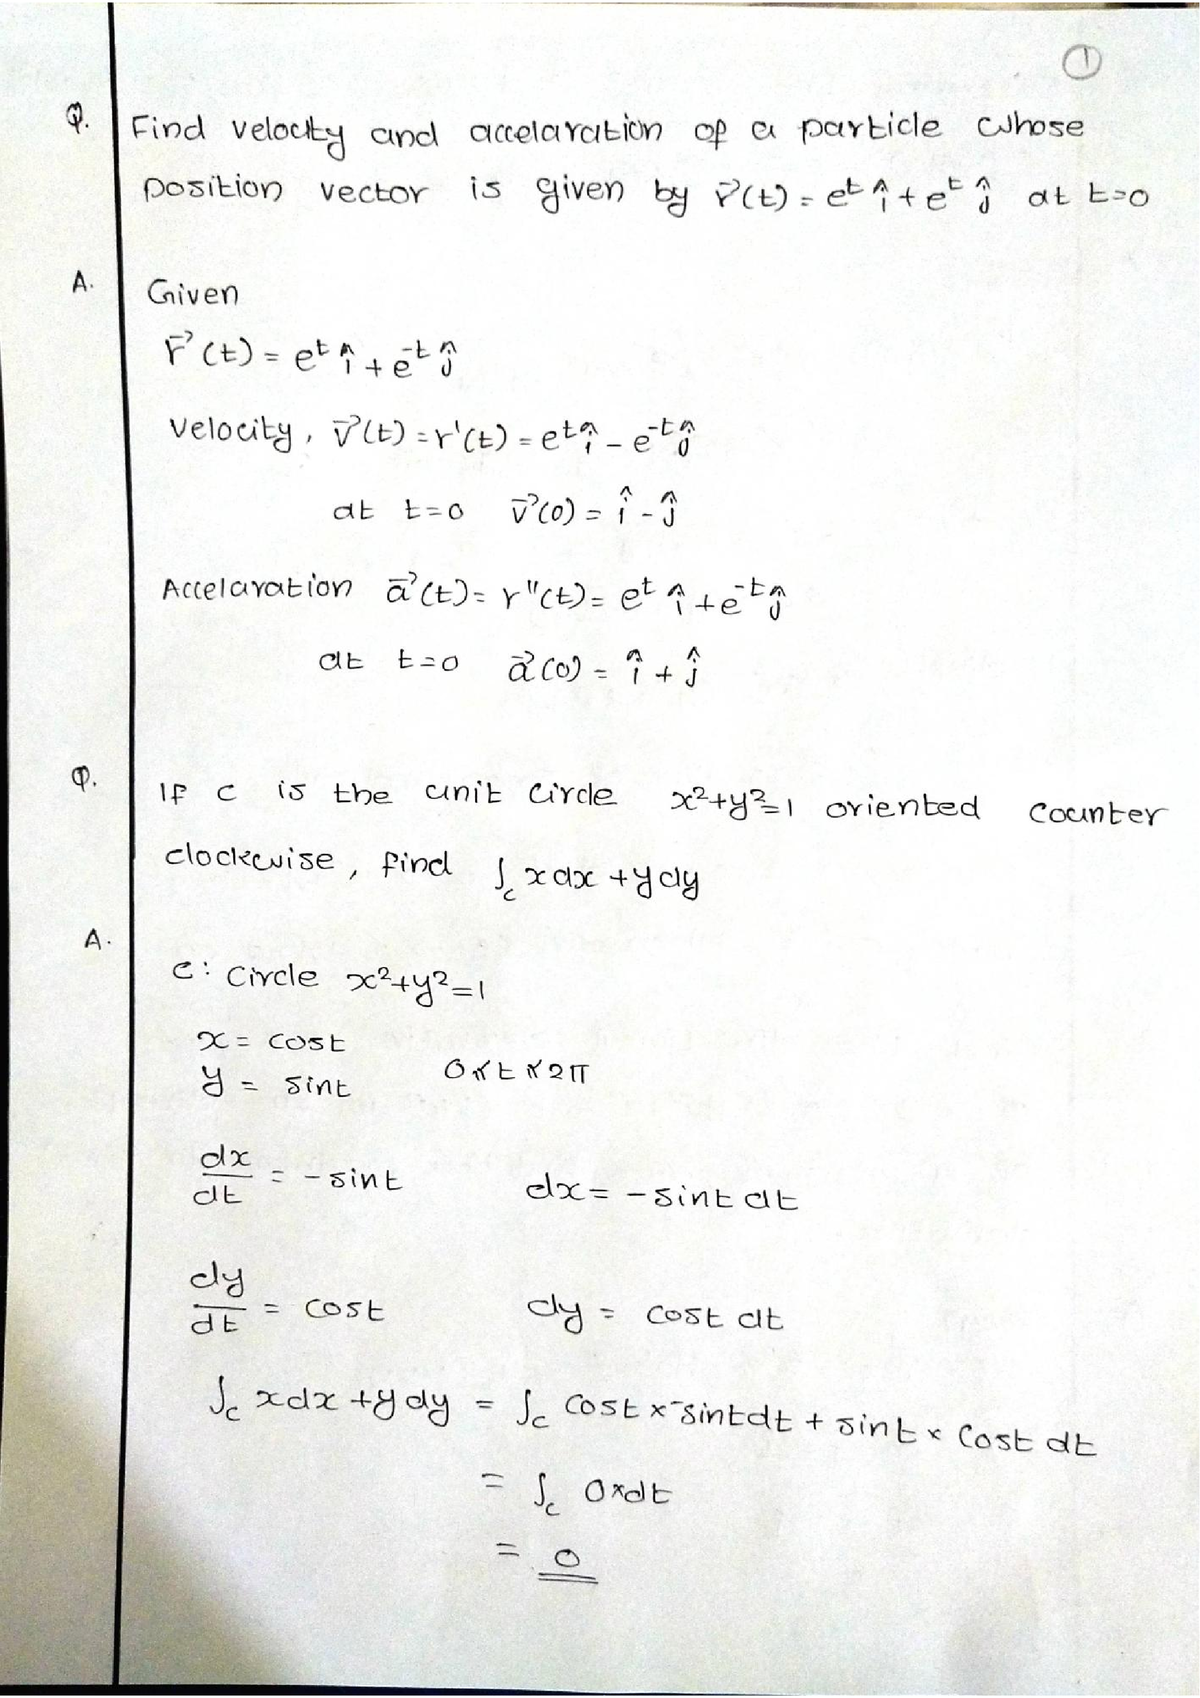 1
Q. Find velocity and accelaration of a particle whose
position vector is given by r⃗(t) = e^t î + e^t ĵ at t=0
A. Given
r⃗(t) = e^t î + e^-t ĵ
Velocity, v⃗(t) = r'(t) = e^t î - e^-t ĵ
at t=0 v⃗(0) = î - ĵ
Accelaration a⃗(t) = r"(t) = e^t î + e^-t ĵ
at t=0 a⃗(0) = î + ĵ
Q. If c is the unit circle x²+y²=1 oriented counter
clockwise, find ∫c xdx + ydy
A.
c: Circle x²+y²=1
x = cost
y = sint 0≤t≤2π
dx/dt = -sint dx = -sint dt
dy/dt = cost dy = cost dt
∫c xdx + ydy = ∫c cost x -sintdt + sint x cost dt
= ∫c 0xdt
= 0